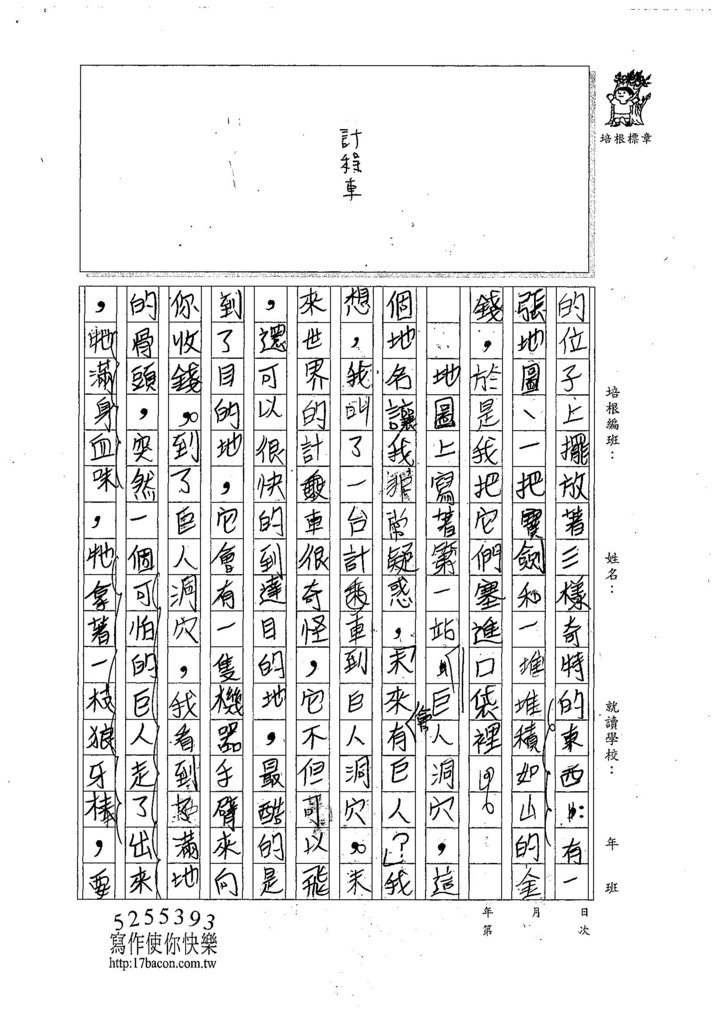 培根標章
計程車
培根編班：
姓名：
就讀學校：
年
班
的位子上擺放著三樣奇特的東西：有一
張地圖、一把寶劍和一堆堆積如山的金
錢，於是我把它們塞進口袋裡。
地圖上寫著第一站：「巨人洞穴，這
個地名讓我非常疑惑，未來會有巨人？」我
想，我叫了一台計乘車，到巨人洞穴。未
來世界的計乘車很奇怪，它不但可以飛
，還可以很快的到達目的地，最酷的是
到了目的地，它會有一隻機器手臂來向
你收錢。到了巨人洞穴，我看到了滿地
的骨頭，突然一個可怕的巨人走了出來
，牠滿身血味，牠拿著一枝狼牙棒，要
年 月 日
第 次
5255393
寫作使你快樂
http:17bacon.com.tw